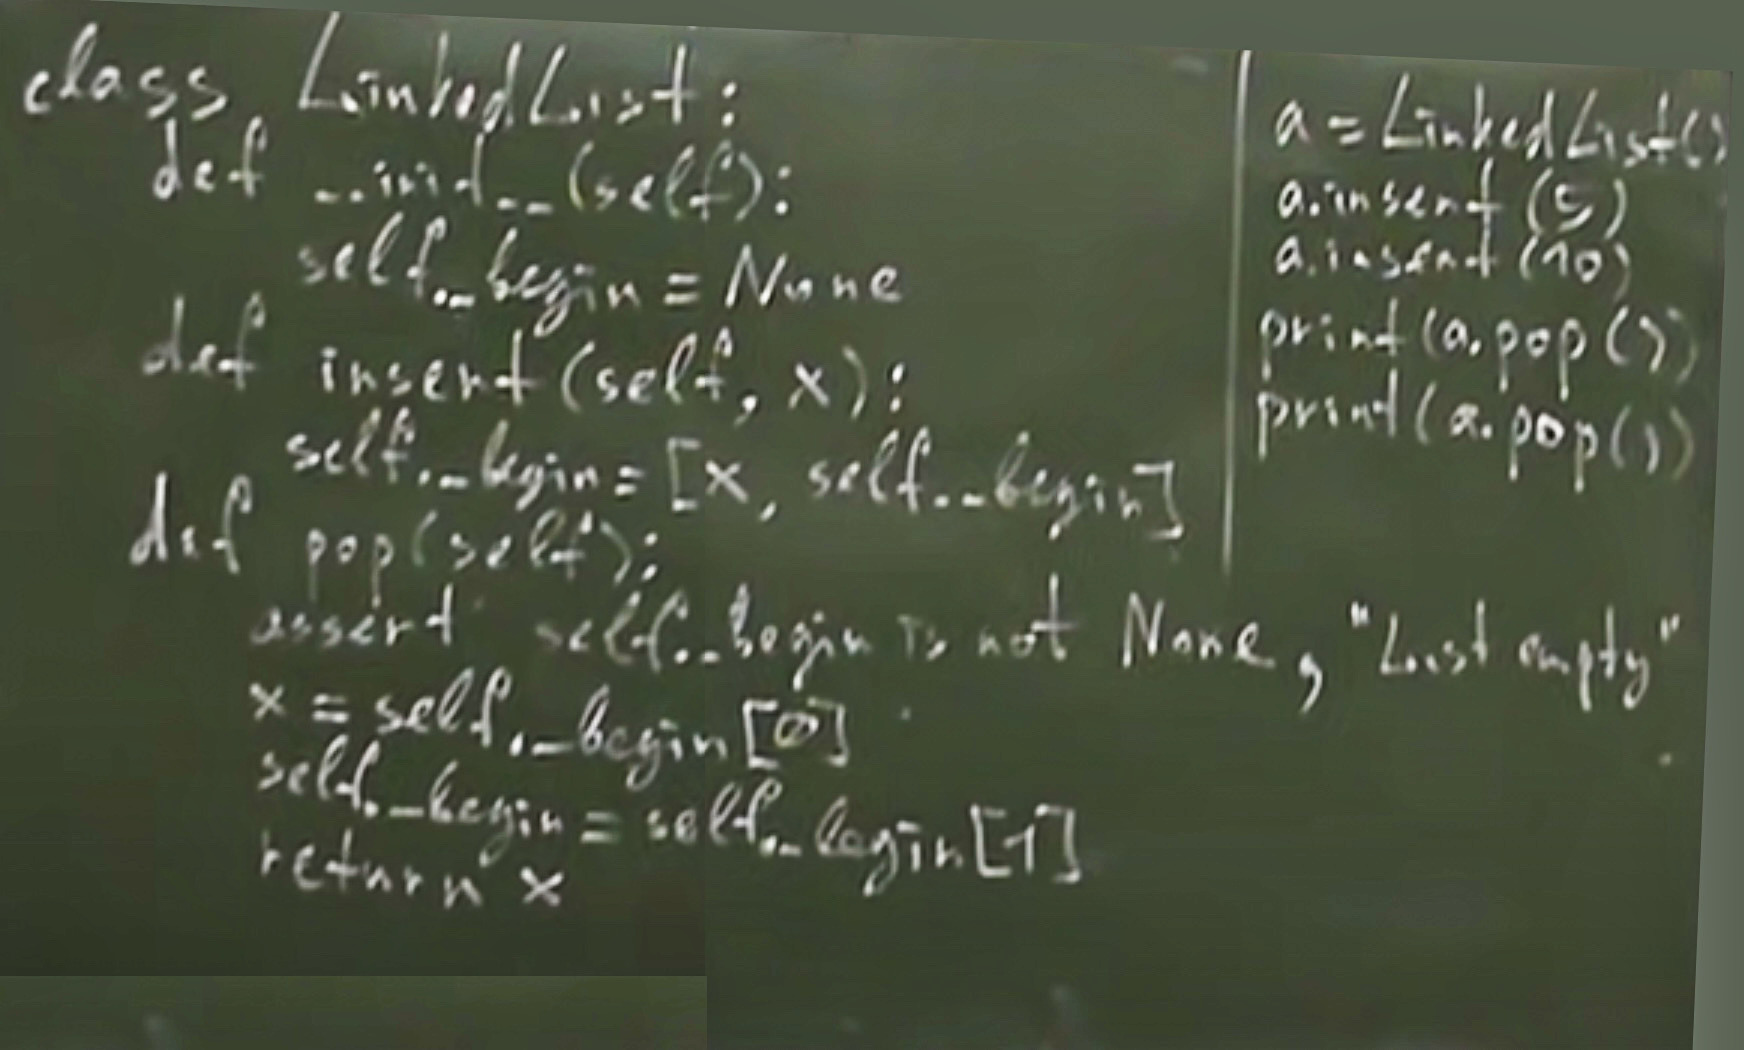 class LinkedList:
def __init__(self):
self._begin = None
def insert(self, x):
self._begin = [x, self._begin]
def pop(self):
assert self._begin is not None, "List empty"
x = self._begin[0]
self._begin = self._begin[1]
return x
a = LinkedList()
a.insert(5)
a.insert(10)
print(a.pop())
print(a.pop())